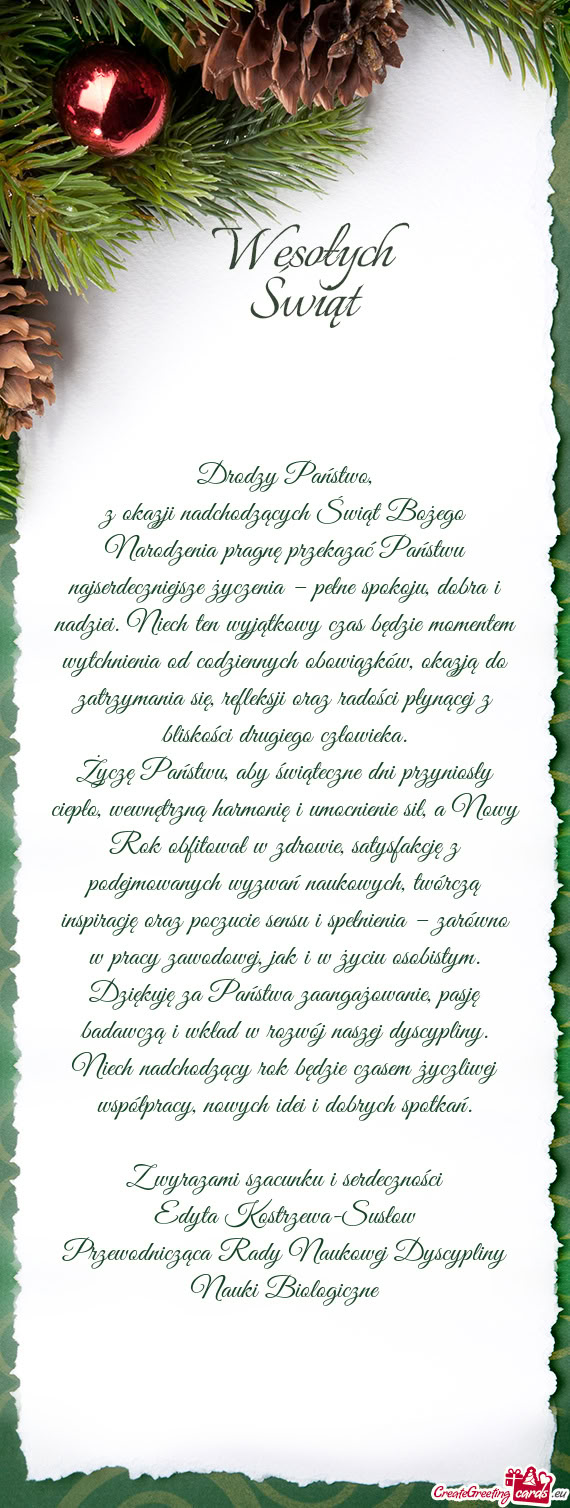 Wesołych
Świąt
Drodzy Państwo,
z okazji nadchodzących Świąt Bożego
Narodzenia pragnę przekazać Państwu
najserdeczniejsze życzenia – pełne spokoju, dobra i
nadziei. Niech ten wyjątkowy czas będzie momentem
wytchnienia od codziennych obowiązków, okazją do
zatrzymania się, refleksji oraz radości płynącej z
bliskości drugiego człowieka.
Życzę Państwu, aby świąteczne dni przyniosły
ciepło, wewnętrzną harmonię i umocnienie sił, a Nowy
Rok obfitował w zdrowie, satysfakcję z
podejmowanych wyzwań naukowych, twórczą
inspirację oraz poczucie sensu i spełnienia – zarówno
w pracy zawodowej, jak i w życiu osobistym.
Dziękuję za Państwa zaangażowanie, pasję
badawczą i wkład w rozwój naszej dyscypliny.
Niech nadchodzący rok będzie czasem życzliwej
współpracy, nowych idei i dobrych spotkań.
Z wyrazami szacunku i serdeczności
Edyta Kostrzewa-Susłow
Przewodnicząca Rady Naukowej Dyscypliny
Nauki Biologiczne
CreateGreetingcards.eu